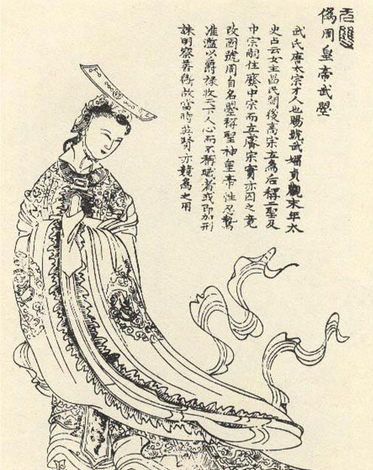 无雙
偽周皇帝武曌
武氏唐太宗才人也賜號武媚貞觀末年太
史占云女主昌民間後高宗立為后稱二聖及
中宗嗣位廢中宗而立睿宗實亦囚之竟
改國號周自名曌稱聖神皇帝性忍鷙
濫以爵祿收天下人心而不稱職者或即加刑
誅明察善斷故當時英賢亦競為之用